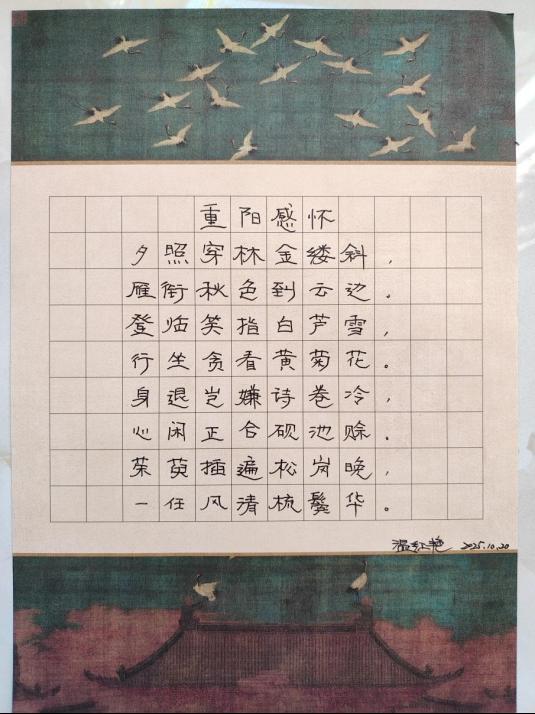 重阳感怀
夕照穿林金缕斜，
雁衔秋色到云边。
登临笑指白芦雪，
行坐贪看黄菊花。
身退岂嫌诗卷冷，
心闲正合砚池赊。
茱萸插遍松岗晚，
一任风清梳鬓华。
温红艳 2025.10.20